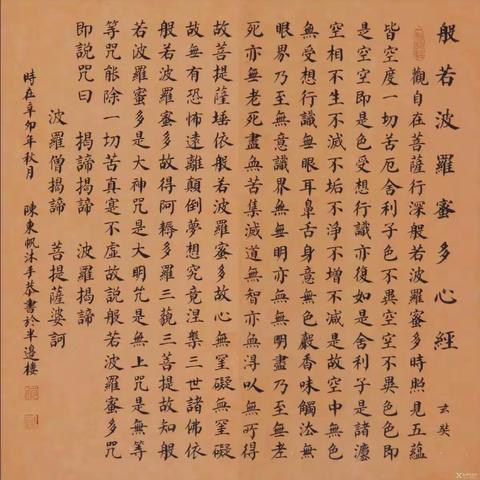 般若波羅蜜多心經 玄奘
觀自在菩薩行深般若波羅蜜多時照見五蘊
皆空度一切苦厄舍利子色不異空空不異色色即
是空空即是色受想行識亦復如是舍利子是諸灋
空相不生不滅不垢不淨不增不減是故空中無色
無受想行識無眼耳鼻舌身意無色聲香味觸法無
眼界乃至無意識界無無明亦無無明盡乃至無老
死亦無老死盡無苦集滅道無智亦無得以無所得
故菩提薩埵依般若波羅蜜多故心無罣礙無罣礙
故無有恐怖遠離顛倒夢想究竟涅槃三世諸佛依
般若波羅蜜多故得阿耨多羅三藐三菩提故知般
若波羅蜜多是大神咒是大明咒是無上咒是無等
等咒能除一切苦真實不虛故說般若波羅蜜多咒
即說咒曰 揭諦揭諦 波羅揭諦
波羅僧揭諦 菩提薩婆訶
時在辛卯年秋月 陳東帆沐手恭書於半邊樓